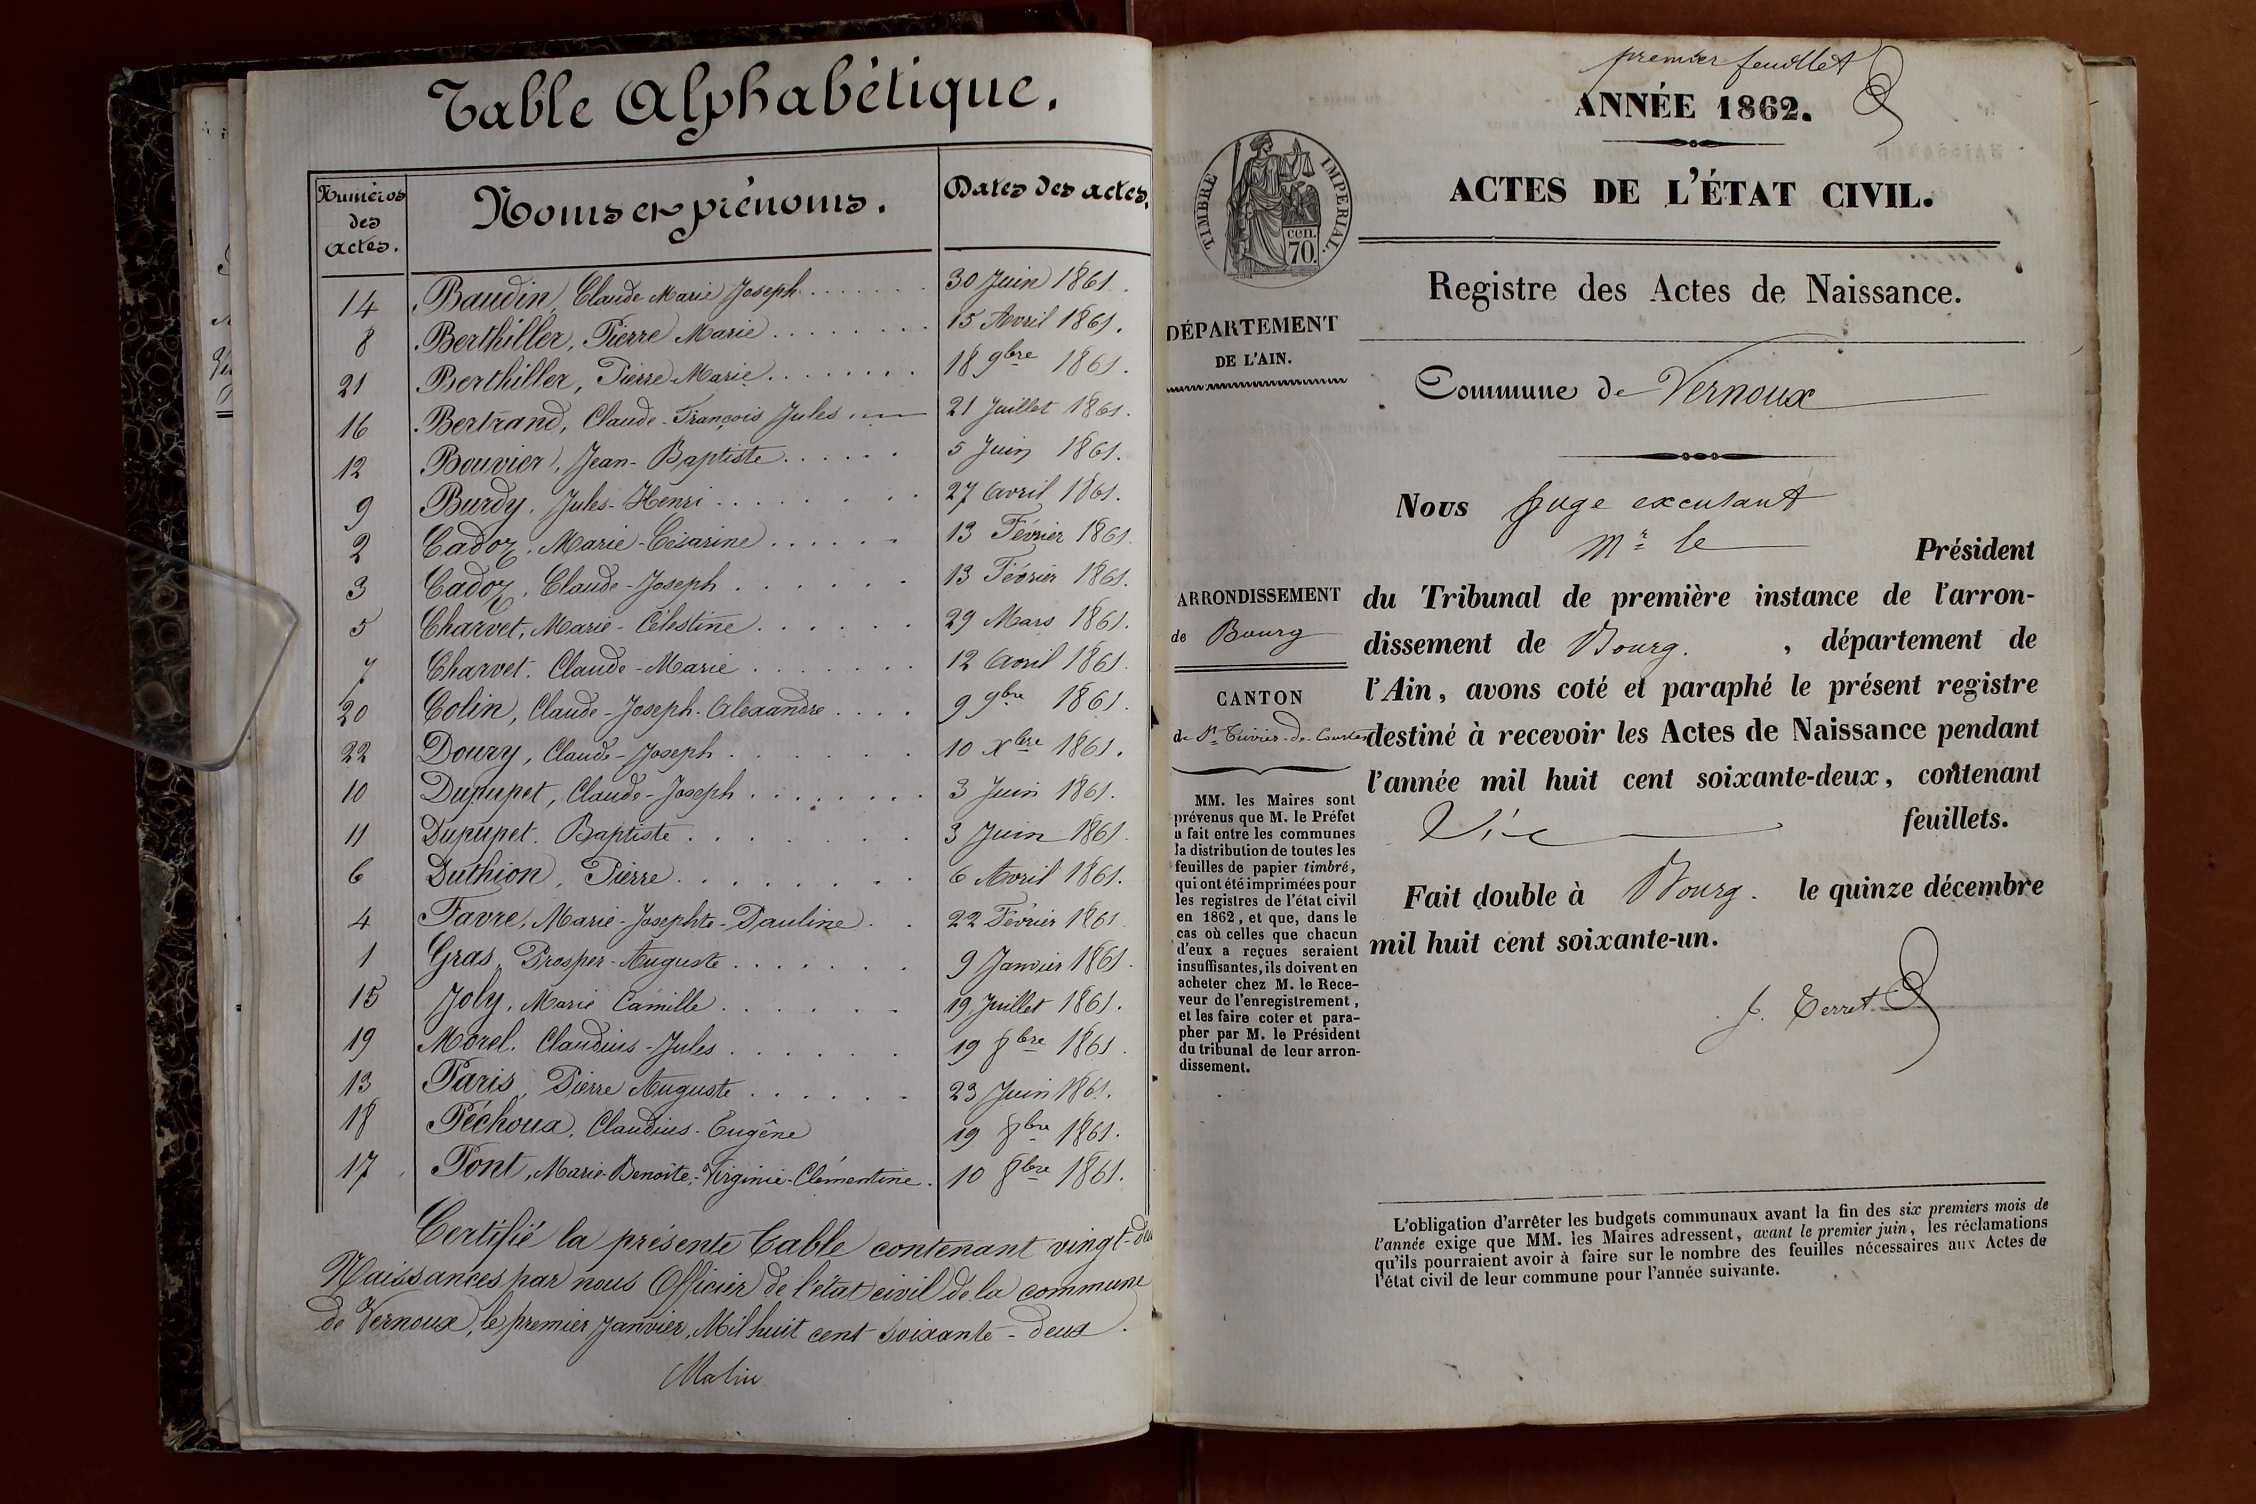 Table Alphabétique.
Numéros des actes.
Noms et prénoms.
Dates des actes.
14 Baudin, Claude Marie Joseph 30 Juin 1861.
8 Berthiller, Pierre Marie 15 Avril 1861.
21 Berthiller, Pierre Marie 18 9bre 1861.
16 Bertrand, Claude-François Jules 21 Juillet 1861.
12 Bouvier, Jean-Baptiste 5 Juin 1861.
9 Burdy, Jules-Henri 27 Avril 1861.
2 Cadoz, Marie-Césarine 13 Février 1861.
3 Cadoz, Claude-Joseph 13 Février 1861.
5 Charvet, Marie-Célestine 29 Mars 1861.
7 Charvet. Claude-Marie 12 Avril 1861.
20 Colin, Claude-Joseph-Alexandre 9 9bre 1861.
22 Doury, Claude-Joseph 10 xbre 1861.
10 Dupupet, Claude-Joseph 3 Juin 1861.
11 Dupupet. Baptiste 3 Juin 1861.
6 Duthion, Pierre 6 Avril 1861.
4 Favre, Marie-Josephte-Pauline 22 Février 1861
1 Gras, Prosper-Auguste 9 Janvier 1861.
15 Joly, Marie Camille 19 Juillet 1861.
19 Morel. Claudius-Jules 19 8bre 1861.
13 Paris, Pierre Auguste 23 Juin 1861.
18 Péchoux, Claudius-Eugêne 19 8bre 1861.
17 Pont, Marie-Benoite-Virginie-Clémentine. 10 8bre 1861.
Certifié la présente Table contenant vingt-
Naissances par nous Officier de l'état civil de la commune
de Vernoux, le premier Janvier, Mil huit cent soixante-deux.
premier feuillet
ANNÉE 1862.
TIMBRE IMPÉRIAL.
cen. 70.
ACTES DE L'ÉTAT CIVIL.
Registre des Actes de Naissance.
DÉPARTEMENT
DE L'AIN.
Commune de Vernoux
Nous Juge
Mr le Président
ARRONDISSEMENT
de Bourg
CANTON
de St Trivier-de-Courtes
du Tribunal de première instance de l'arron-
dissement de Bourg. , département de
l'Ain, avons coté et paraphé le présent registre
destiné à recevoir les Actes de Naissance pendant
l'année mil huit cent soixante-deux, contenant
feuillets.
Fait double à Bourg. le quinze décembre
mil huit cent soixante-un.
MM. les Maires sont
prévenus que M. le Préfet
a fait entre les communes
la distribution de toutes les
feuilles de papier timbré,
qui ont été imprimées pour
les registres de l'état civil
en 1862, et que, dans le
cas où celles que chacun
d'eux a reçues seraient
insuffisantes, ils doivent en
acheter chez M. le Rece-
veur de l'enregistrement,
et les faire coter et para-
pher par M. le Président
du tribunal de leur arron-
dissement.
L'obligation d'arrêter les budgets communaux avant la fin des six premiers mois de
l'année exige que MM. les Maires adressent, avant le premier juin, les réclamations
qu'ils pourraient avoir à faire sur le nombre des feuilles nécessaires aux Actes de
l'état civil de leur commune pour l'année suivante.